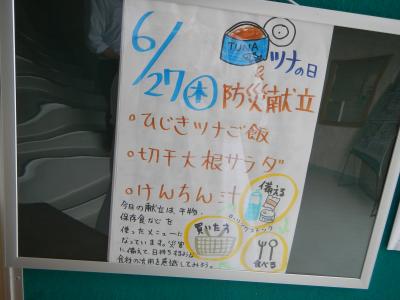 6/27 木
TUNA
ツナの日
&
防災献立
ひじきツナご飯
切干大根サラダ
けんちん汁
備える
ローリングストック
買いた す
食べる
今日の献立は、干物、
保存食などを
使ったメニューに
なっています。災害
に備えて、日持ちするような
食材の活用を意識してみよう。